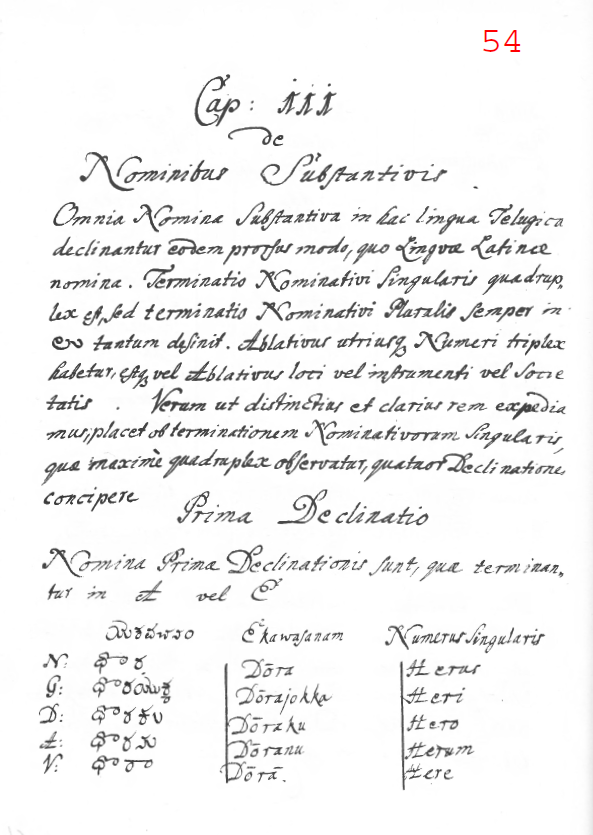 54
Cap: III
de
Nominibus Substantivis
Omnia Nomina Substantiva in hac lingua Telugica
declinantur eodem prorsus modo, quo Linguæ Latinæ
nomina. Terminatio Nominativi Singularis quadrup„
lex est, sed terminatio Nominativi Pluralis semper in
tantum desinit. Ablativus utriusq Numeri triplex
habetur, estq vel Ablativus loci vel instrumenti vel Socie
tatis. Verum ut distinctius et clarius rem expedia
mus, placet ob terminationem Nominativorum Singularis,
quæ maxime quadruplex observatur, quatuor Declinationes
concipere
Prima Declinatio
Nomina Primæ Declinationis sunt, quæ terminan„
tur in A vel E
ఏకవచనం Ekawasanam Numerus Singularis
N: దొర Dōra Herus
G: దొరయొక్క Dōrajokka Heri
D: దొరకు Dōraku Hero
A: దొరను Dōranu Herum
V: దొరా Dōrā. Here